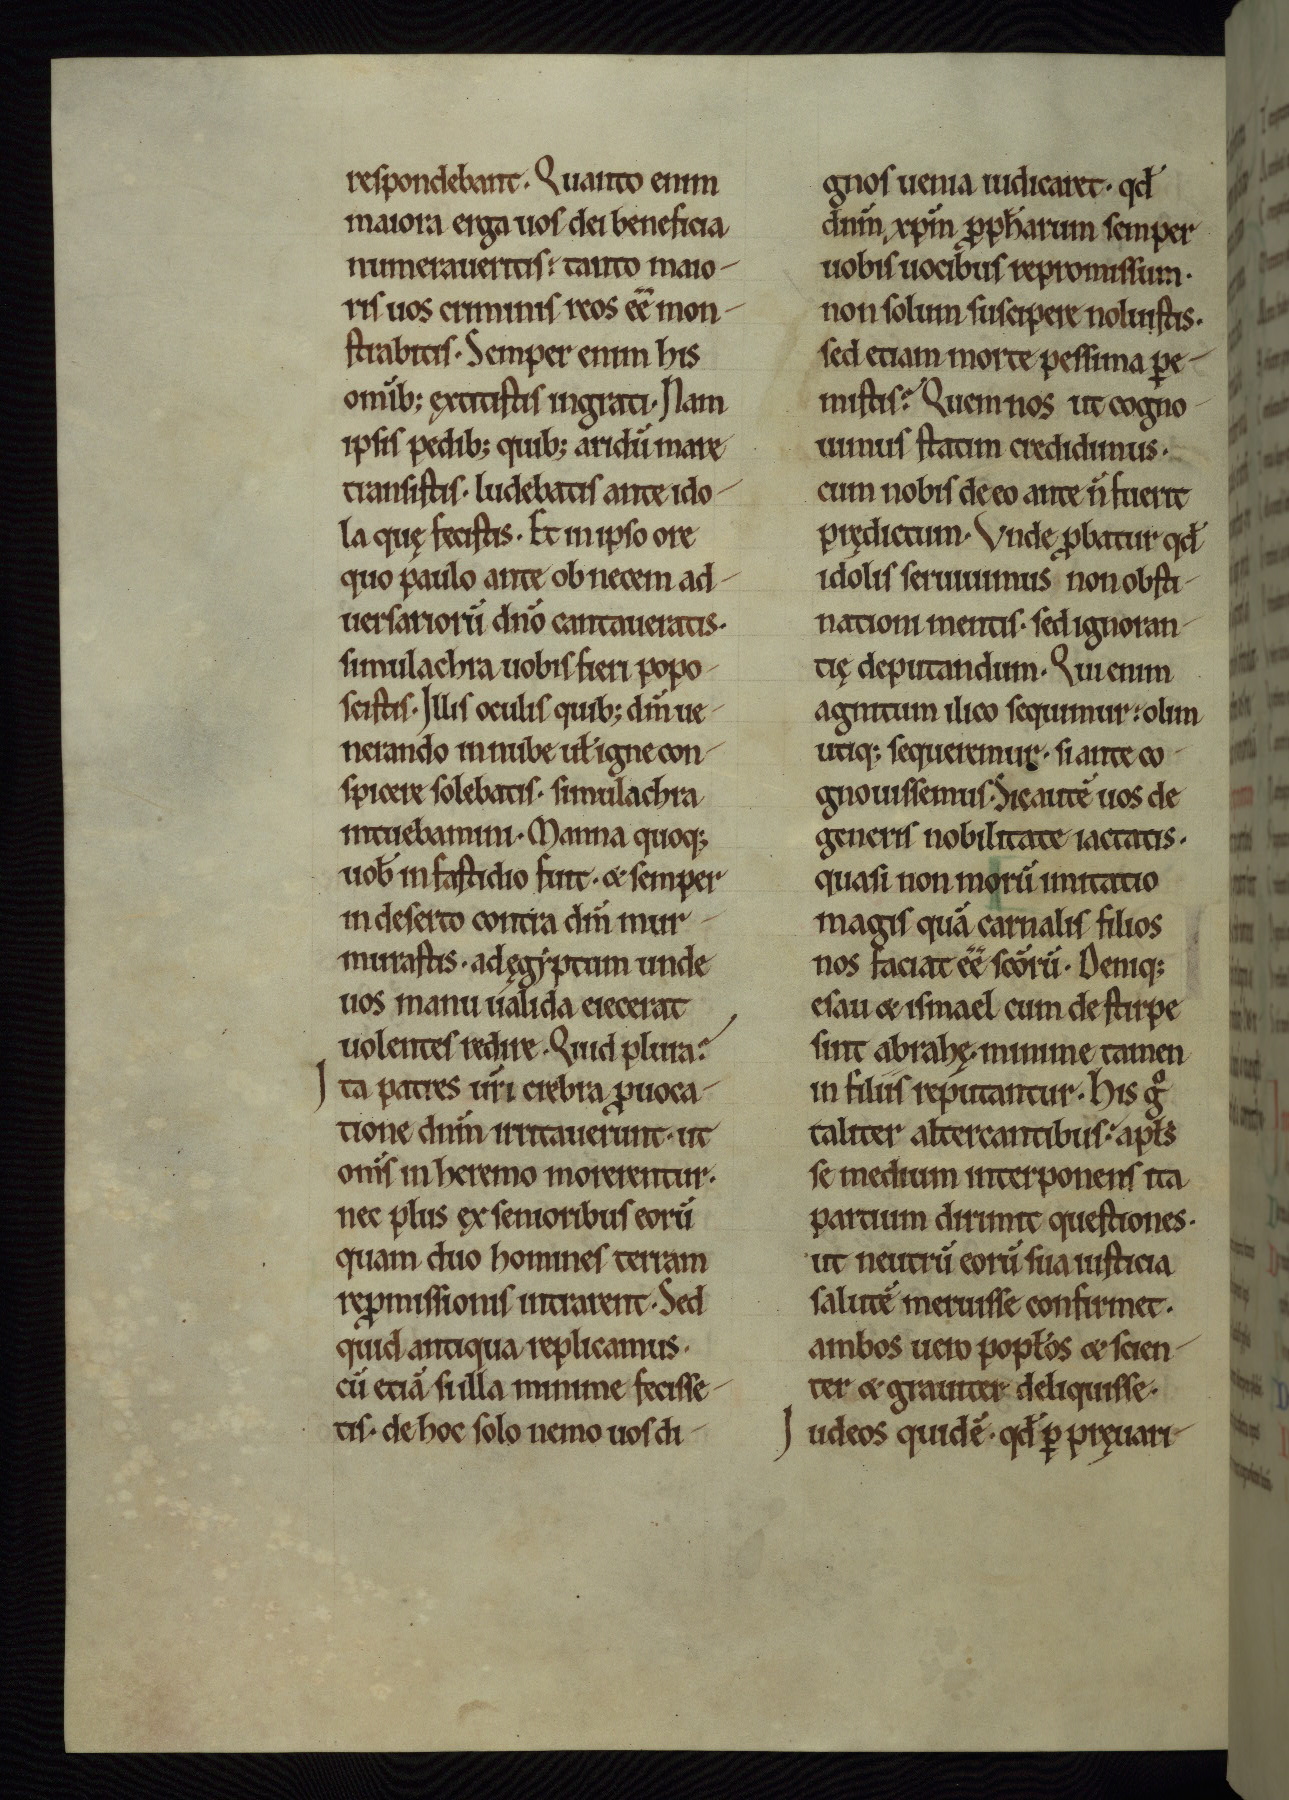 respondebant. Quanto enim
maiora erga uos dei beneficia
numeraueritis: tanto maio-
ris uos criminis reos ee̅ mon-
strabitis. Semper enim his
omib; ęxtitistis ingrati. Nam
ipsis pedib; quib; aridu̅ mare
transistis. ludebatis ante ido-
la quę fecistis. Et in ipso ore
quo paulo ante ob necem ad-
uersarioru̅ dn̅o cantaueratis.
simulachra uobis fieri popo-
scistis. Illis oculis quib; dm̅ ue-
nerando in nube ul̵ igne con-
spicere solebatis. simulachra
intuebamini. Manna quoq;
uob̅ in fastidio fuit. & semper
in deserto contra dm̅ mur-
murastis. ad ęgẏptum unde
uos manu ualida eiecerat
uolentes redire. Quid plura?
Ita patres ur̅i crebra ꝓuoca-
tione dnm̅ irritauerunt. ut
om̅s in heremo morerentur.
nec plus ęx senioribus eoru̅
quam duo homines terram
reꝓmissionis intrarent. Sed
quid antiqua replicamus.
cu̅ etia̅ si illa minime fecisse-
tis. de hoc solo nemo uos di-
gnos uenia iudicaret. qd̅
dnm̅ xpm̅ ꝓph̅arum semper
uobis uocibus repromissum.
non solum suscipere noluistis.
sed etiam morte pessima ꝑe-
mistis? Quem nos ut cogno-
uimus statim credidimus.
cum nobis de eo ante n̅ fuerit
prędictum. Vnde ꝓbatur qd̅
idolis seruiuimus non obsti-
nationi mentis. sed ignoran-
tię deputandum. Qui enim
agnitum ilico sequimur: olim
utiq; sequeremur. si ante co-
gnouissemus. Sic aute̅ uos de
generis nobilitate iactatis.
quasi non moru̅ imitatio
magis qua̅ carnalis filios
nos faciat ee̅ sc̅oru̅. Deniq;
esau & ismael cum de stirpe
sint abrahę. minime tamen
in filiis reputantur. His gͦ
taliter altercantibus: apl̵s
se medium interponens ita
partium dirimit questiones.
ut neutru̅ eoru̅ sua iusticia
salute̅ meruisse confirmet.
ambos uero popl̵os & scien-
ter & grauiter deliquisse.
Iudeos quide̅. qd̅ ꝑ pręuari-